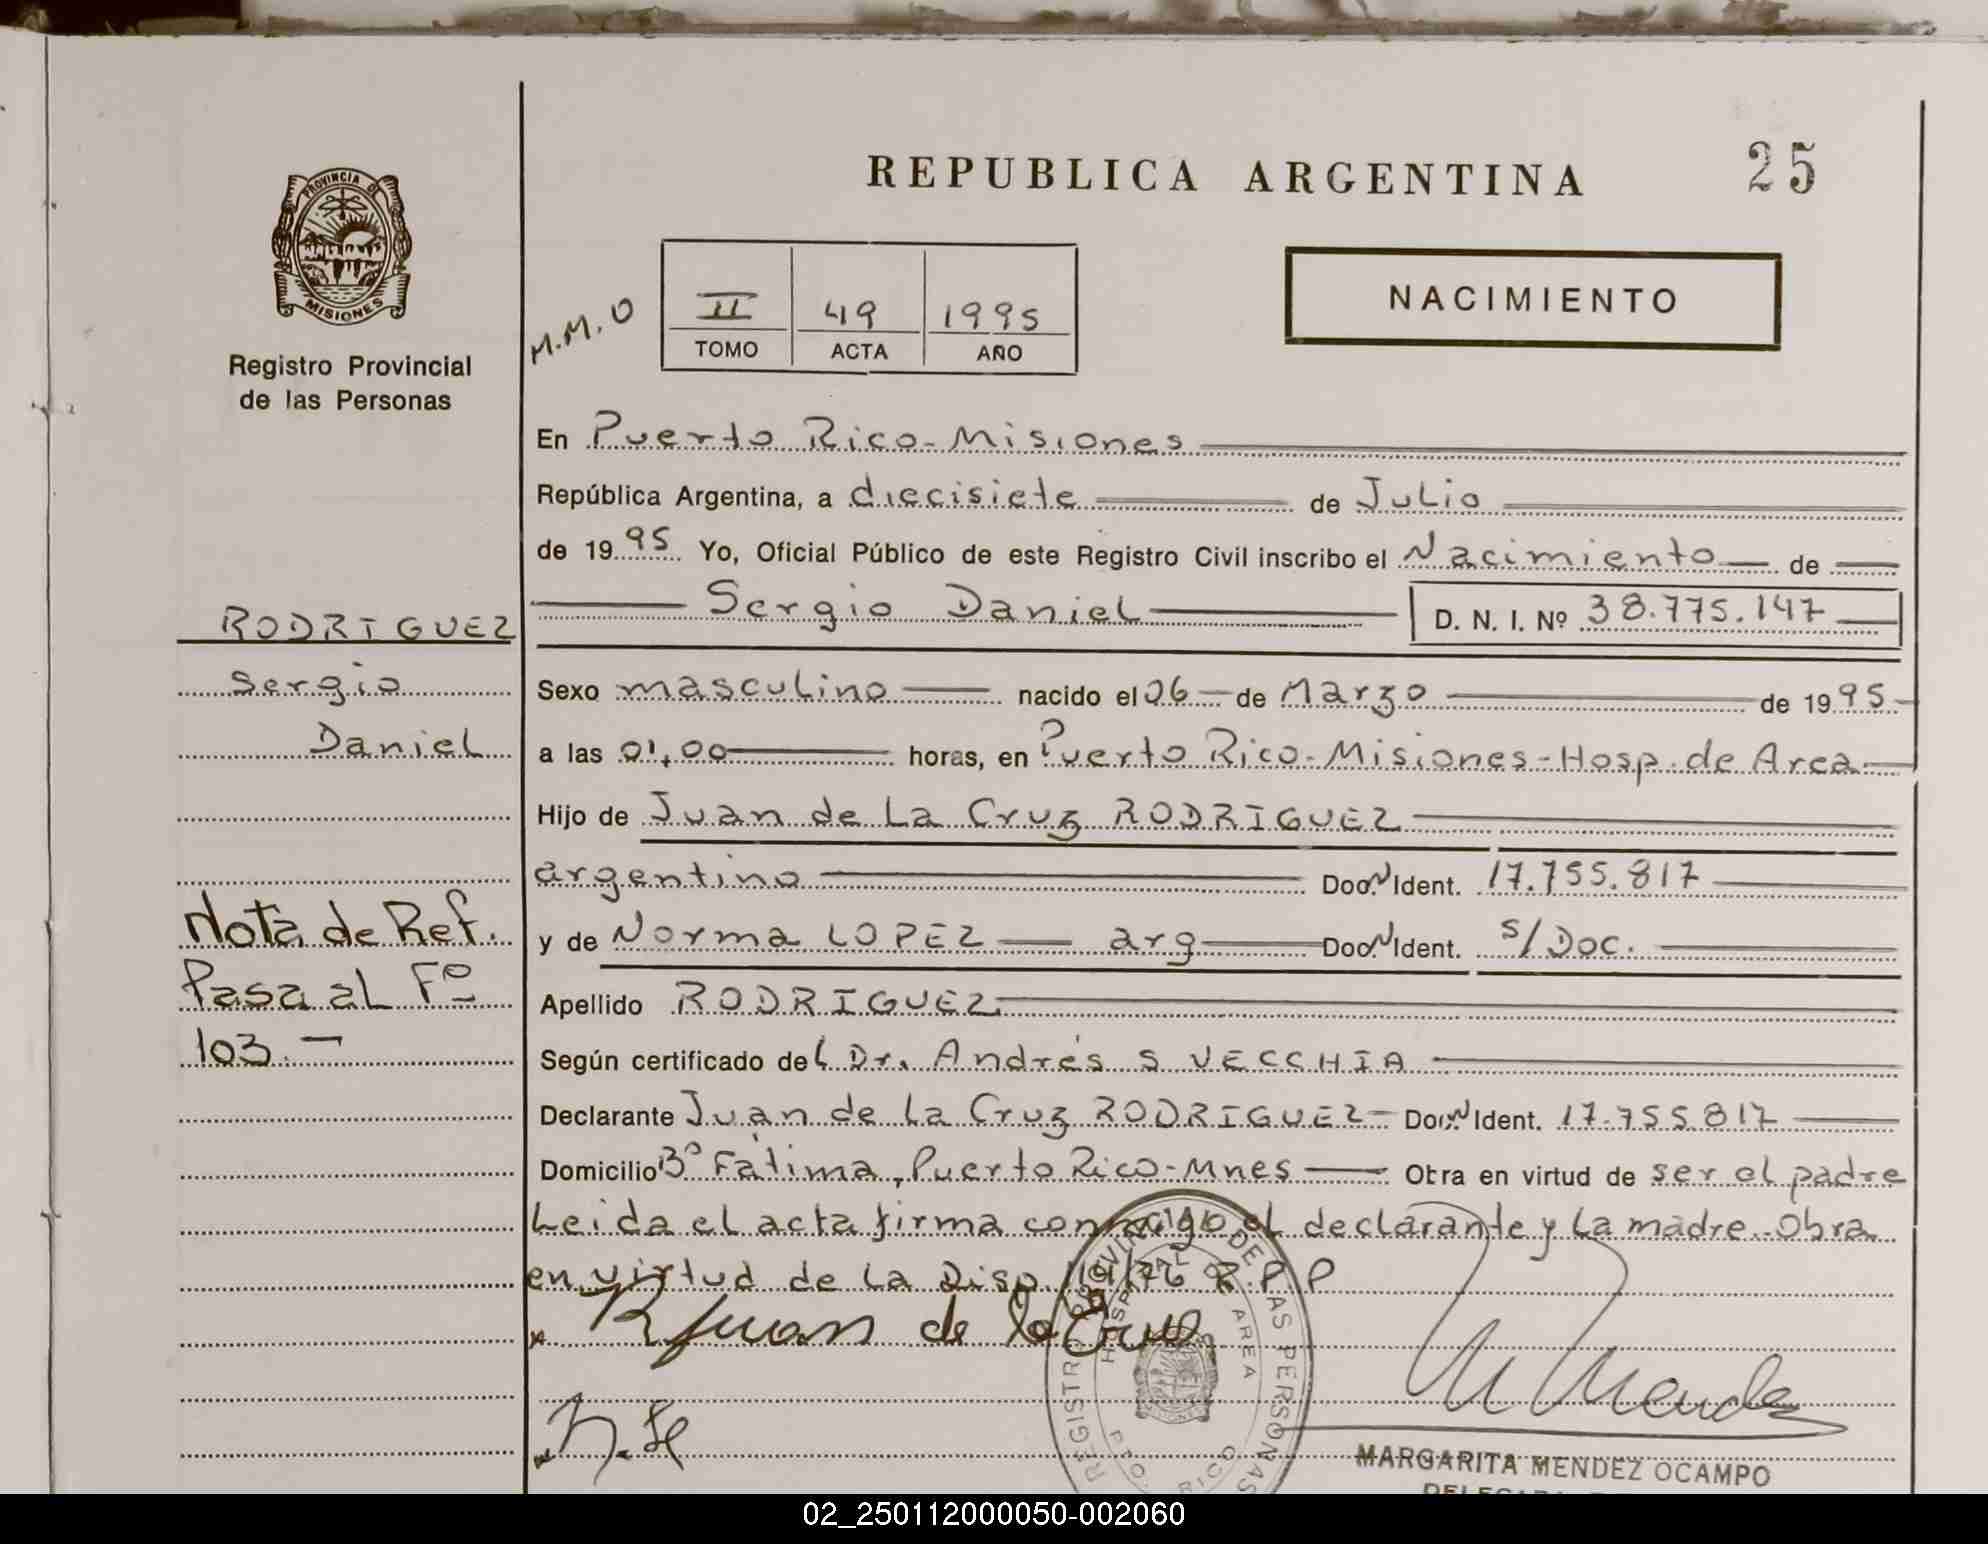 REPUBLICA ARGENTINA
25
PROVINCIA DE
MISIONES
Registro Provincial
de las Personas
M.M.O
II 49 1995
TOMO ACTA AÑO
NACIMIENTO
En Puerto Rico - Misiones
República Argentina, a diecisiete de Julio
de 1995 Yo, Oficial Público de este Registro Civil inscribo el Nacimiento de
Sergio Daniel D. N. I. Nº 38.775.147
RODRIGUEZ
Sergio
Daniel
Sexo masculino nacido el 06 de Marzo de 1995
a las 01,00 horas, en Puerto Rico - Misiones - Hosp. de Area
Hijo de Juan de La Cruz RODRIGUEZ
argentino Doc. N Ident. 17.755.817
y de Norma LOPEZ arg Doc. N Ident. s/Doc.
Apellido RODRIGUEZ
Según certificado del Dr. Andrés S VECCHIA
Declarante Juan de La Cruz RODRIGUEZ Doc. N Ident. 17.755.817
Domicilio Bº Fátima, Puerto Rico - Mnes Obra en virtud de ser el padre
Leida el acta firma conmigo el declarante y La madre. Obra
en virtud de La Disp. 119/76 R.P.P
Nota de Ref.
Pasa al Fº
103.-
R Juan de la Cruz
N. Le
M Mendez
REGISTRO PROVINCIAL DE LAS PERSONAS
HOSPITAL DE AREA
PTO. RICO
MARGARITA MENDEZ OCAMPO
02_250112000050-002060